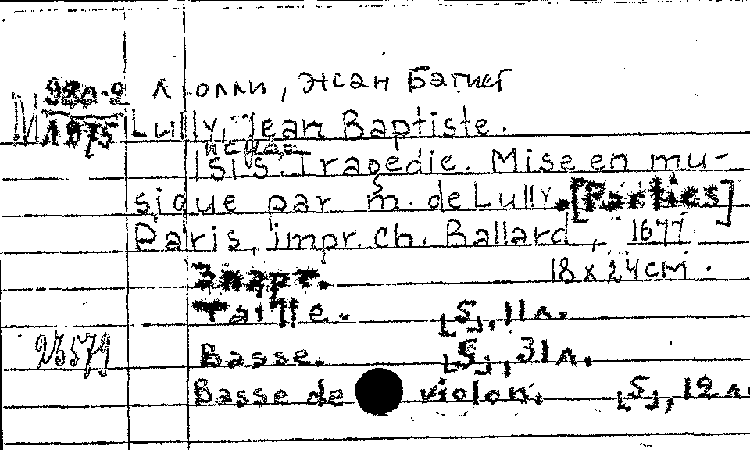 Люлли, Жан Батист
М 98л-2
Л 875
Lully, Jean Baptiste.
Isis. Tragedie. Mise en mu-
sique par m. de Lully. [Parties]
Paris, impr. Ch. Ballard, 1677
18 x 24 см.
3 парт.
Taille. [5], 11 л.
23579 Basse. [5], 31 л.
Basse de violon. [5], 12 л.